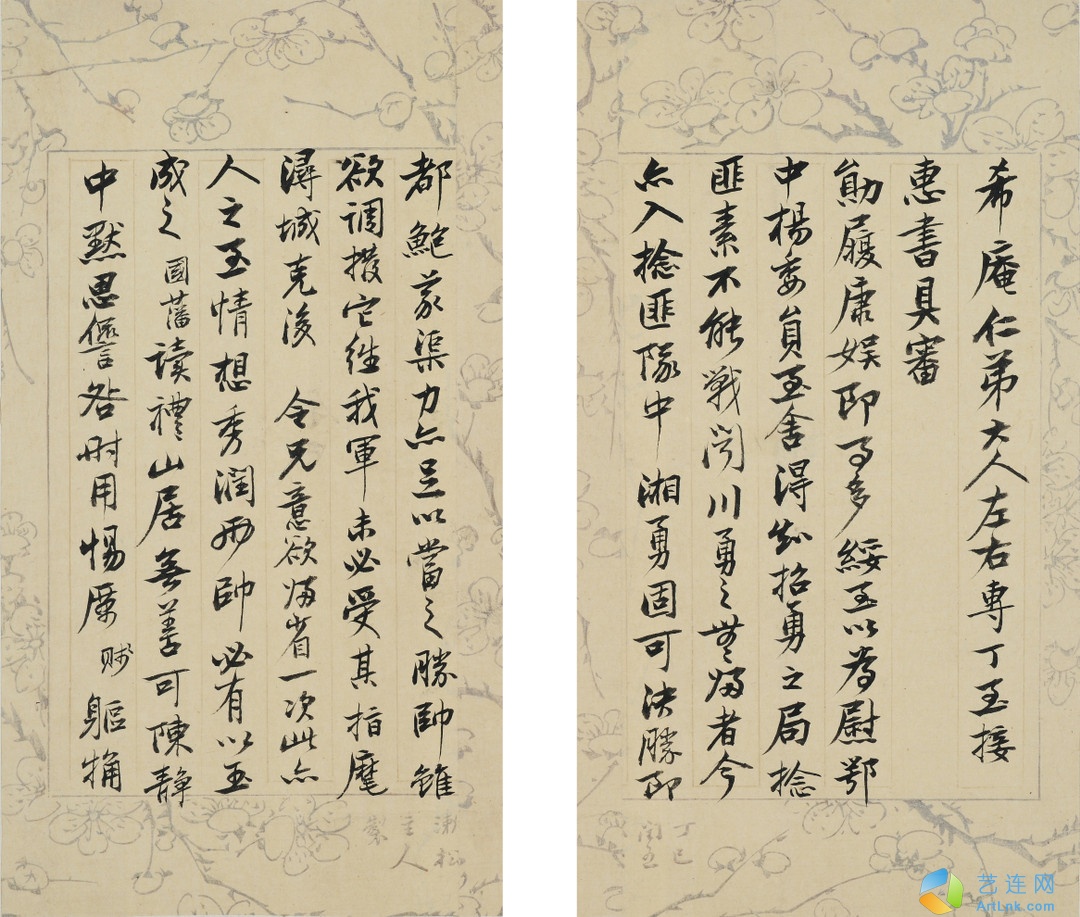 希庵仁弟大人左右専丁至接
惠書具審
勛履康娱即事多綏至以為慰鄂
中楊委員至舍得知招勇之局捻
匪素不能戰闻川勇之無歸者今
亦入捻匪隊中湘勇固可決勝即
都鮑蒋渠力亦足以當之勝帥雖
欲調撥它往我軍未必受其指麾
潯城克復 令兄意欲歸省一次此亦
人之至情想秀潤两帥必有以玉
成之 國藩读禮山居無善可陳静
中默思愆咎时用惕厲 賤軀犕
丁巳
閏五
漱松
主人
製
艺连网
ArtLnk.com